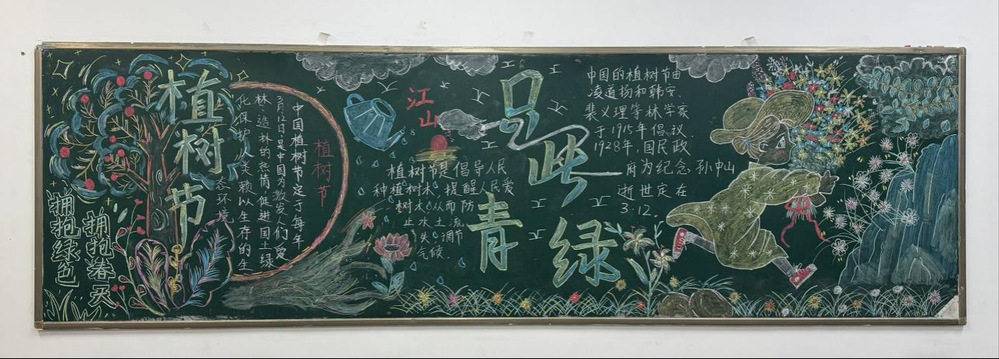 植树节
拥抱春天
拥抱绿色
植树节
中国植树节定于每年
3月12日,是中国为激发人们爱
林、造林的热情,促进国土绿
化,保护人类赖以生存的生
态环境
江山
只此
青绿
植树节是倡导人民
种植树木,提醒人民爱
树木
中国的植树节由
凌道扬和韩安、
裴义理等林学家
于1915年倡议
1928年,国民政
府为纪念孙中山
逝世定在
3.12。